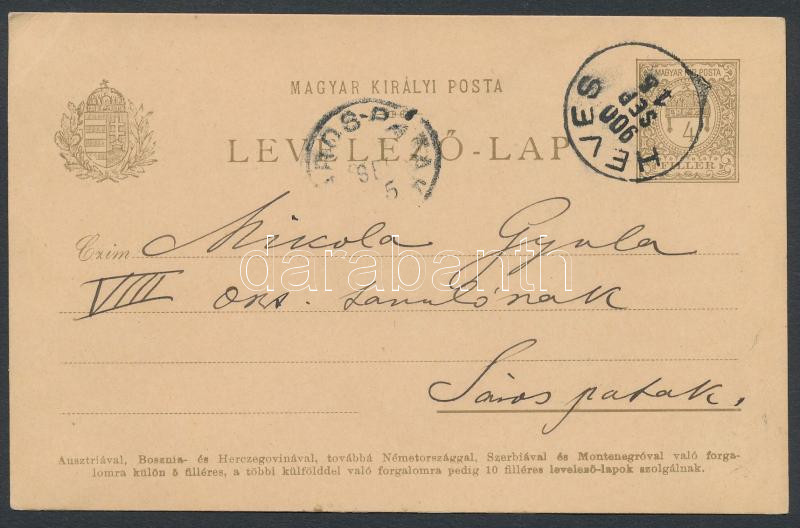 MAGYAR KIRÁLYI POSTA
LEVELEZŐ-LAP
MAGY. KIR. POSTA
4
FILLÉR
TEVES
900
SEP
5
ÁROS-PATAK
SE
5
Czim Mikola Gyula
VIII oszt. tanulónak
Sárospatak.
darabanth
Ausztriával, Bosznia- és Herczegovinával, továbbá Németországgal, Szerbiával és Montenegróval való forga-
lomra külön 5 filléres, a többi külfölddel való forgalomra pedig 10 filléres levelező-lapok szolgálnak.